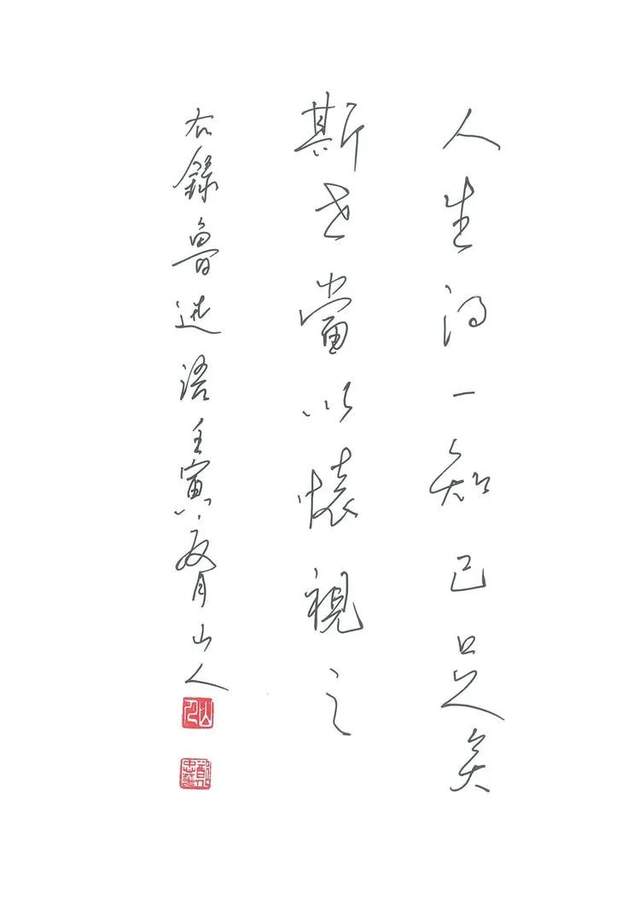 人生得一知己足矣
斯世當以懷視之
右錄魯迅語壬寅夏月山人
山人